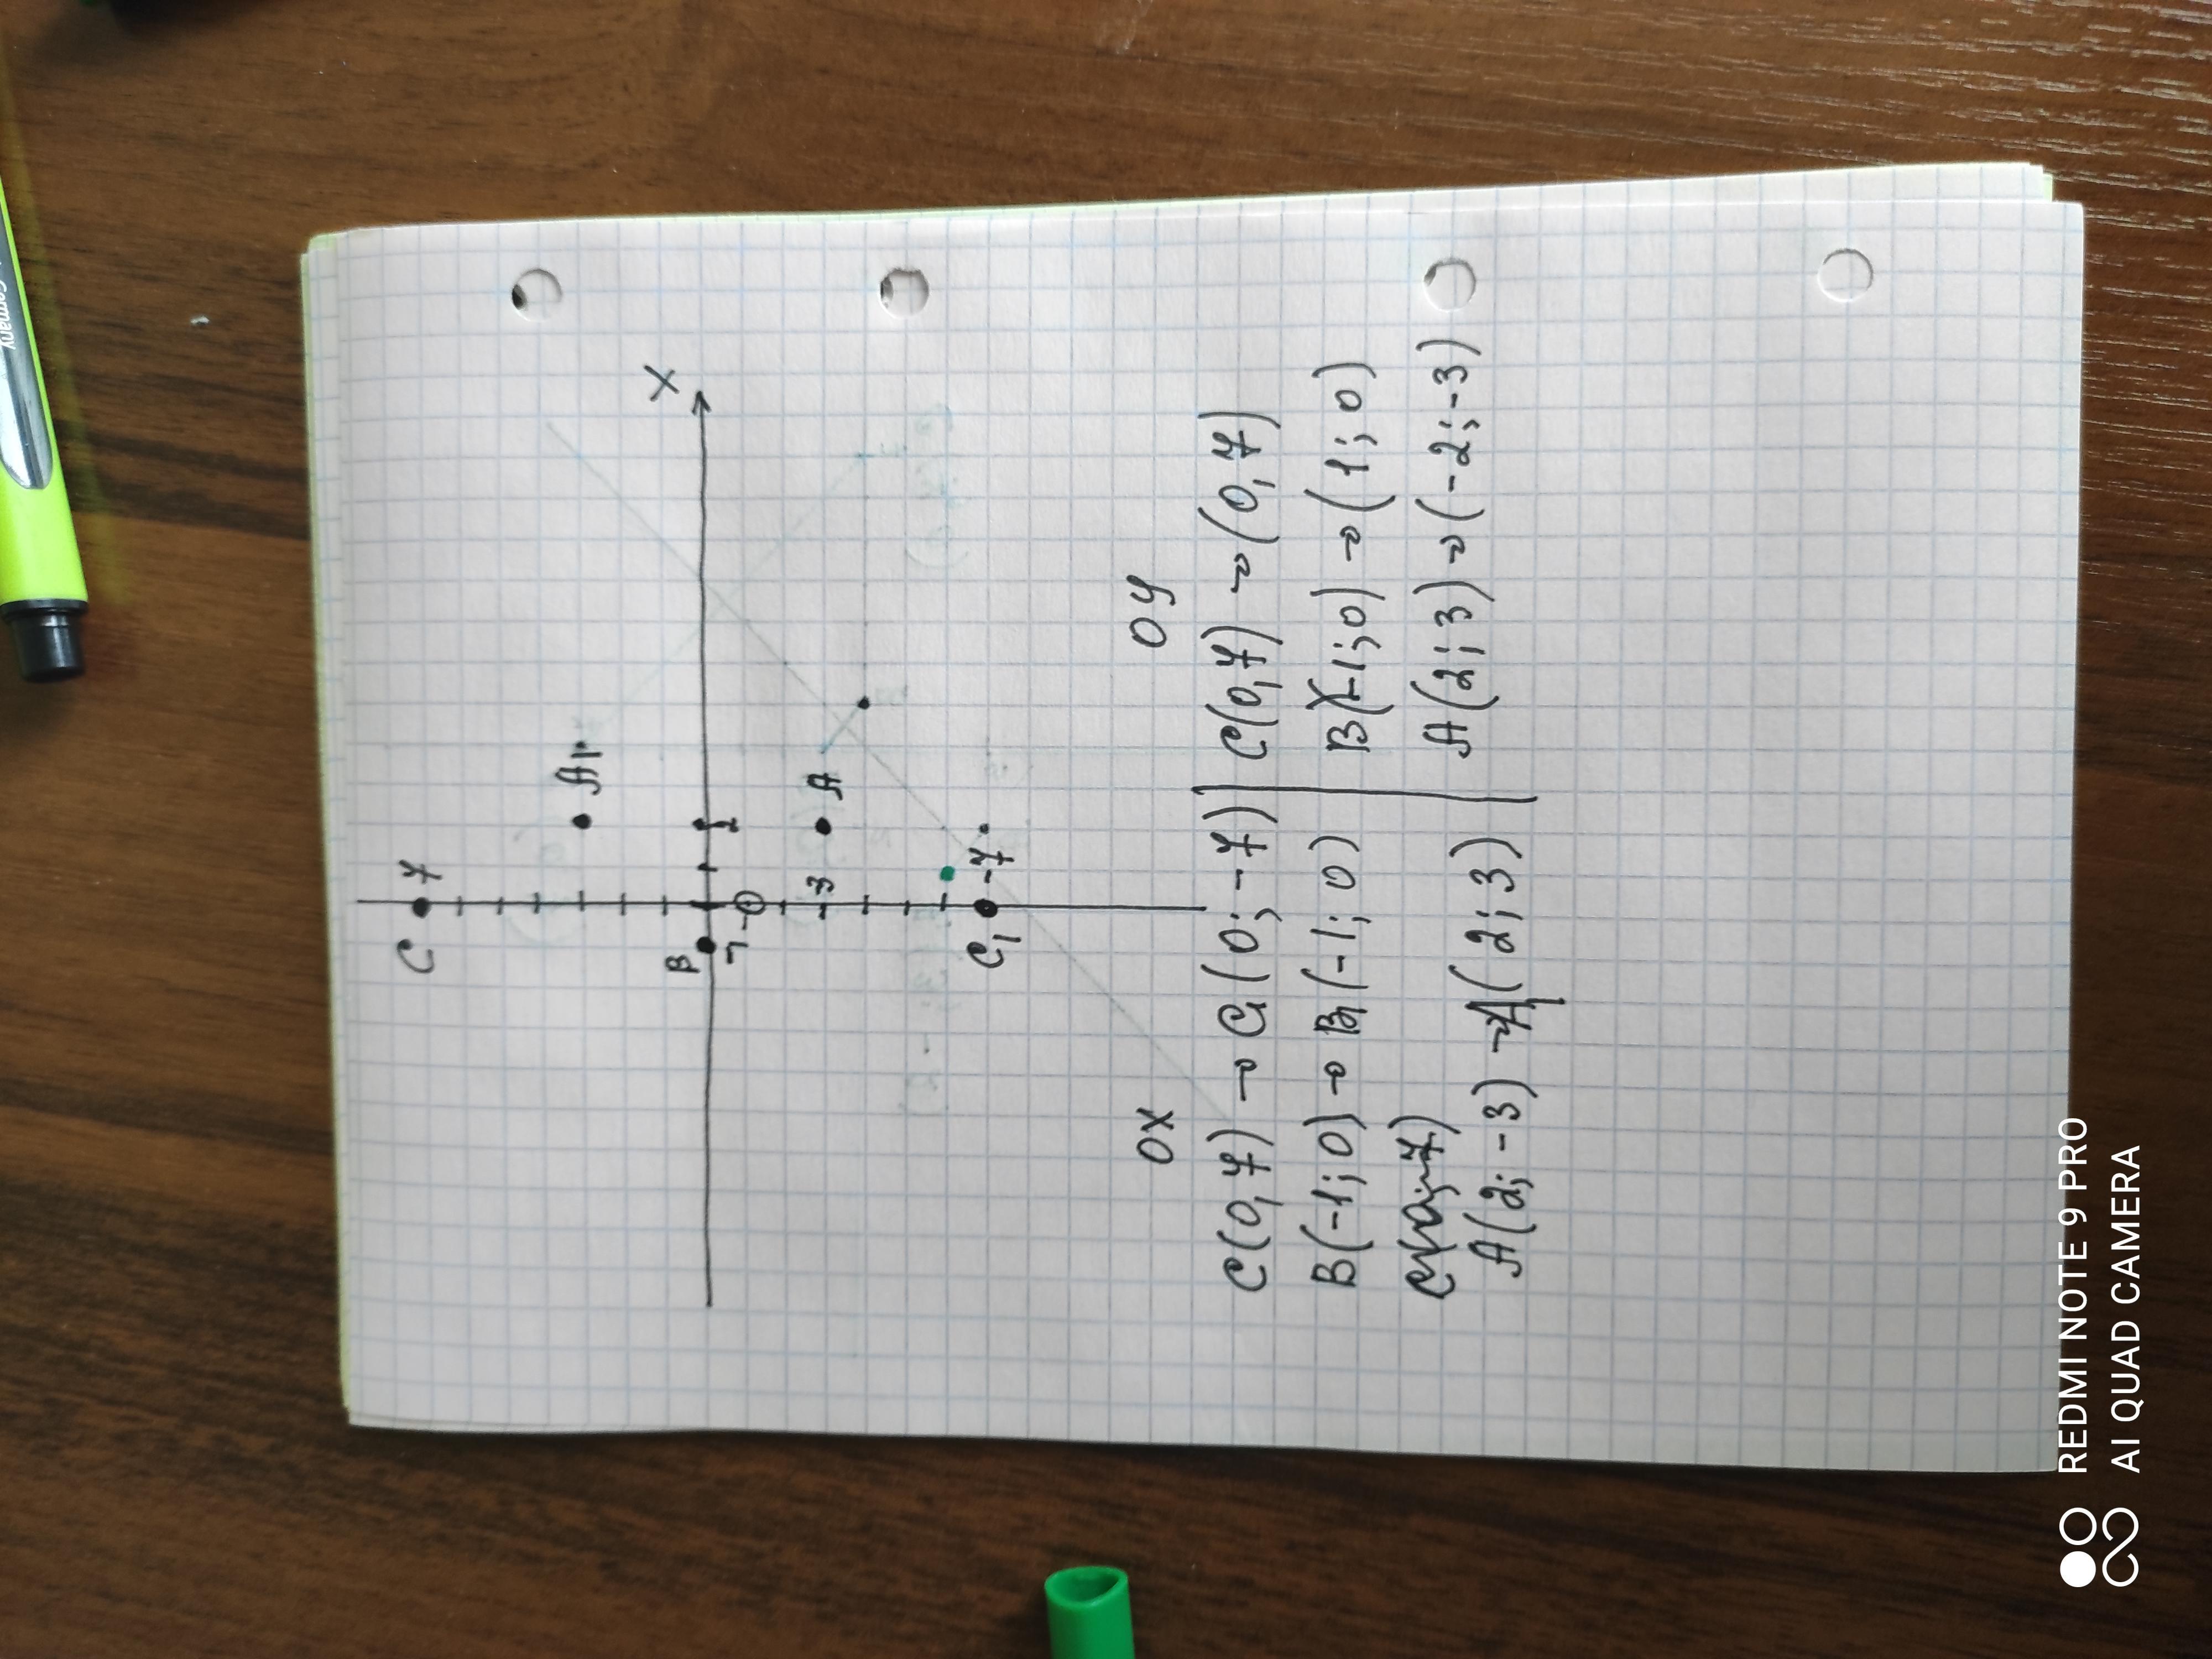 C 7
A1
X
B
-1
0
2
-3
A
C1 -7
OX OY
C(0,7) → C1(0;-7) | C(0,7) → (0,7)
B(-1;0) → B1(-1;0) | B(-1;0) → (1;0)
A(2;-3) → A1(2;3) | A(2;3) → (-2;-3)
Germany
REDMI NOTE 9 PRO
AI QUAD CAMERA